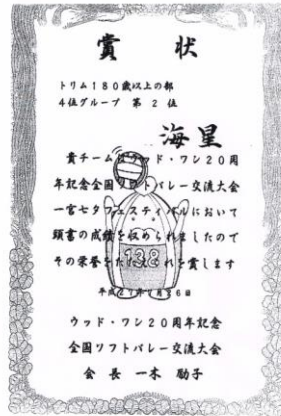 賞状
トリム180歳以上の部
4位グループ 第2位
海星
貴チームはウッド・ワン20周
年記念全国ソフトバレー交流大会
一宮七夕フェスティバルにおいて
頭書の成績を収められましたので
その栄誉をたたえこれを賞します
138
平成
ウッド・ワン20周年記念
全国ソフトバレー交流大会
会長 一木 励子